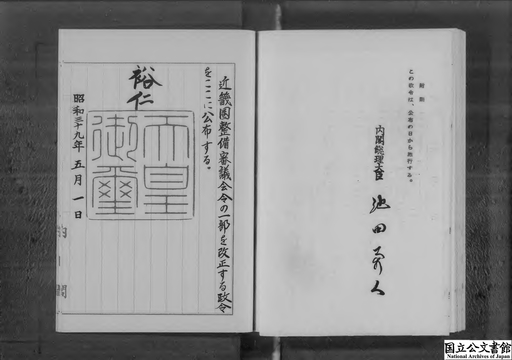 近畿圏整備審議会令の一部を改正する政令
をここに公布する。
裕仁
天皇
御璽
昭和三十九年五月一日
内閣
附則
この政令は、公布の日から施行する。
内閣総理大臣 池田勇人
国立公文書館
National Archives of Japan